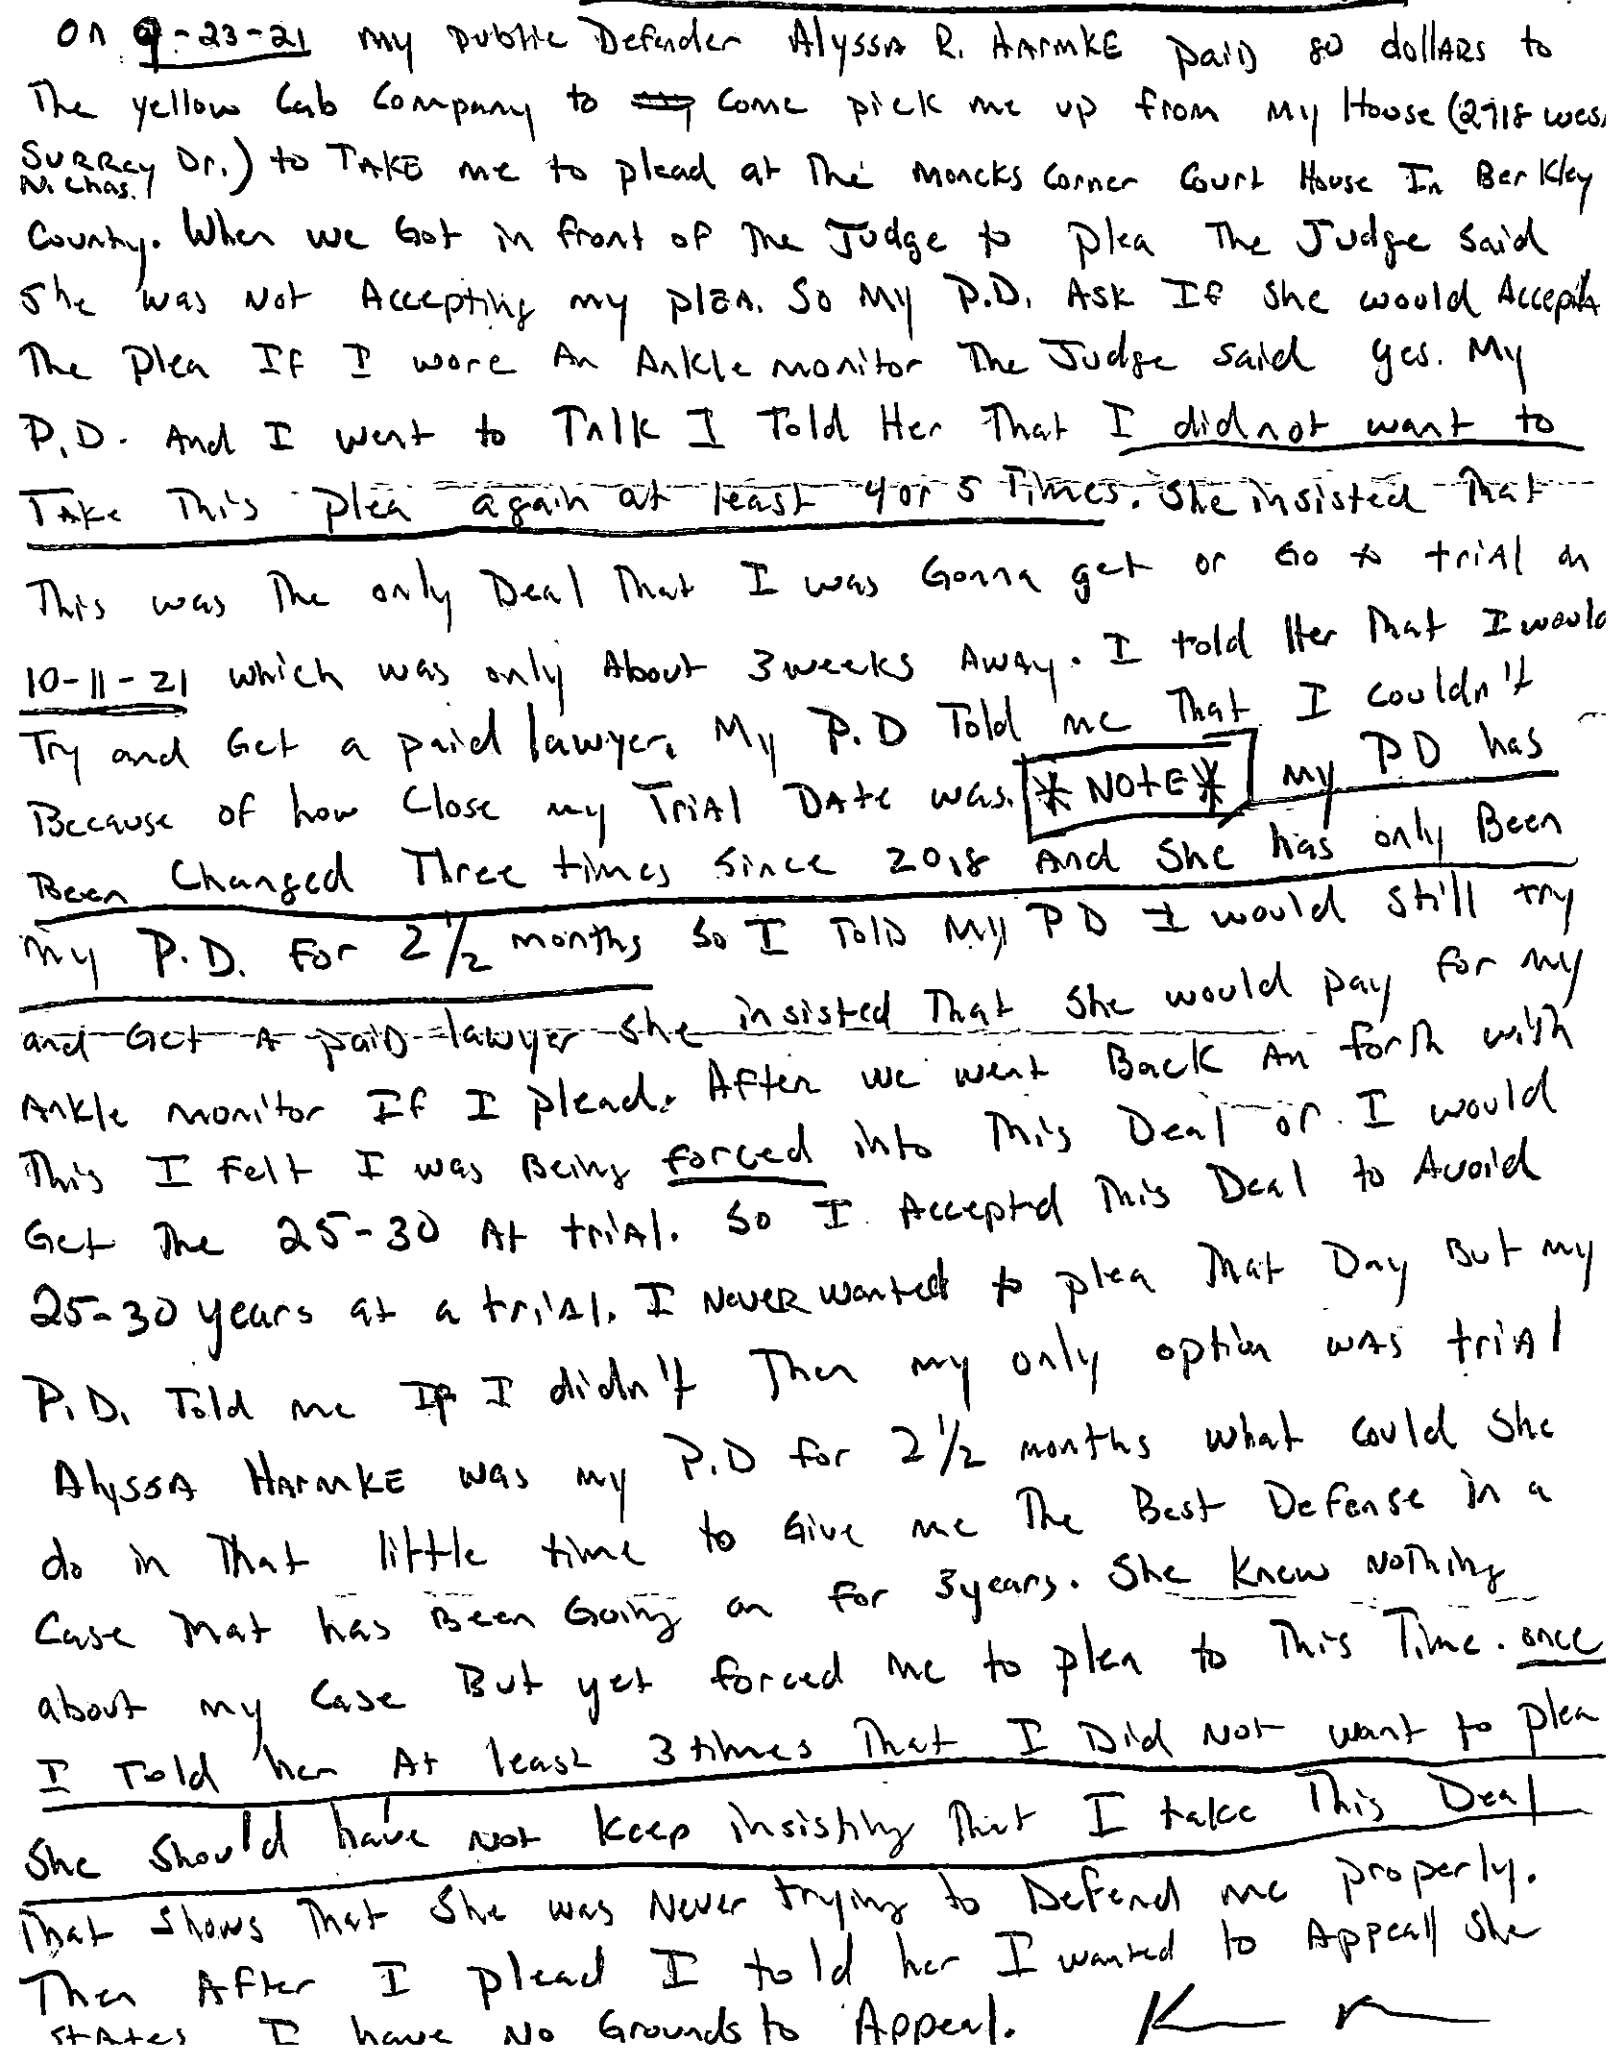 On 9-23-21 my public Defender Alyssa R. Harmke paid 80 dollars to
The yellow Cab Company to come pick me up from my House (2718 wes
Surrey Dr.) to TAKE me to plead at The Moncks Corner Court House In Berkley
N. Chas.
County. When we Got in front of The Judge to plea The Judge said
She was Not Accepting my plea. So My P.D. Ask If she would Accept
The plea If I wore An Ankle monitor The Judge said yes. My
P.D. And I went to Talk I Told Her That I did not want to
Take This plea again at least 4 or 5 Times. She insisted That
This was The only Deal That I was Gonna get or Go to trial on
10-11-21 which was only About 3 weeks Away. I told Her That I would
Try and Get a paid lawyer. My P.D Told me That I couldn't
Because of how Close my Trial Date was. *NOTE* my PD has
Been Changed Three times since 2018 And She has only Been
my P.D. For 2 1/2 months so I Told My PD I would still try
and Get A paid lawyer she insisted That she would pay for my
Ankle monitor If I plead. After we went Back An forth with
This I felt I was Being forced into This Deal or I would
Get The 25-30 At trial. So I Accepted This Deal to Avoid
25-30 years at a trial. I Never wanted to plea That Day But my
P.D. Told me If I didn't Then my only option was trial
Alyssa Harmke was my P.D for 2 1/2 months what could she
do in That little time to Give me The Best Defense in a
Case That has Been Going on for 3 years. She Knew Nothing
about my Case But yet forced me to plea to This Time. once
I Told her At least 3 times That I Did Not want to plea
She should have Not Keep insisting That I take This Deal
That shows That She was Never trying to Defend me properly.
Then After I plead I told her I wanted to Appeall she
states I have No Grounds to Appeal.